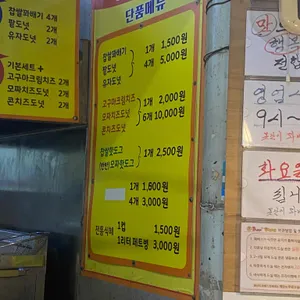 찹쌀꽈배기 4개
팥도넛 2개
유자도넛 2개
기본세트 +
고구마크림치즈 2개
모짜치즈도넛 2개
콘치즈도넛 2개
단품메뉴
찹쌀꽈배기
팥도넛
유자도넛
1개 1,500원
4개 5,000원
고구마크림치즈
모짜치즈도넛
콘치즈도넛
1개 2,000원
6개 10,000원
찹쌀핫도그
모짜핫도그
1개 2,500원
1개 1,600원
4개 3,000원
전통식혜
1컵 1,500원
1리터 페트병 3,000원
영업시
9시~
화요일